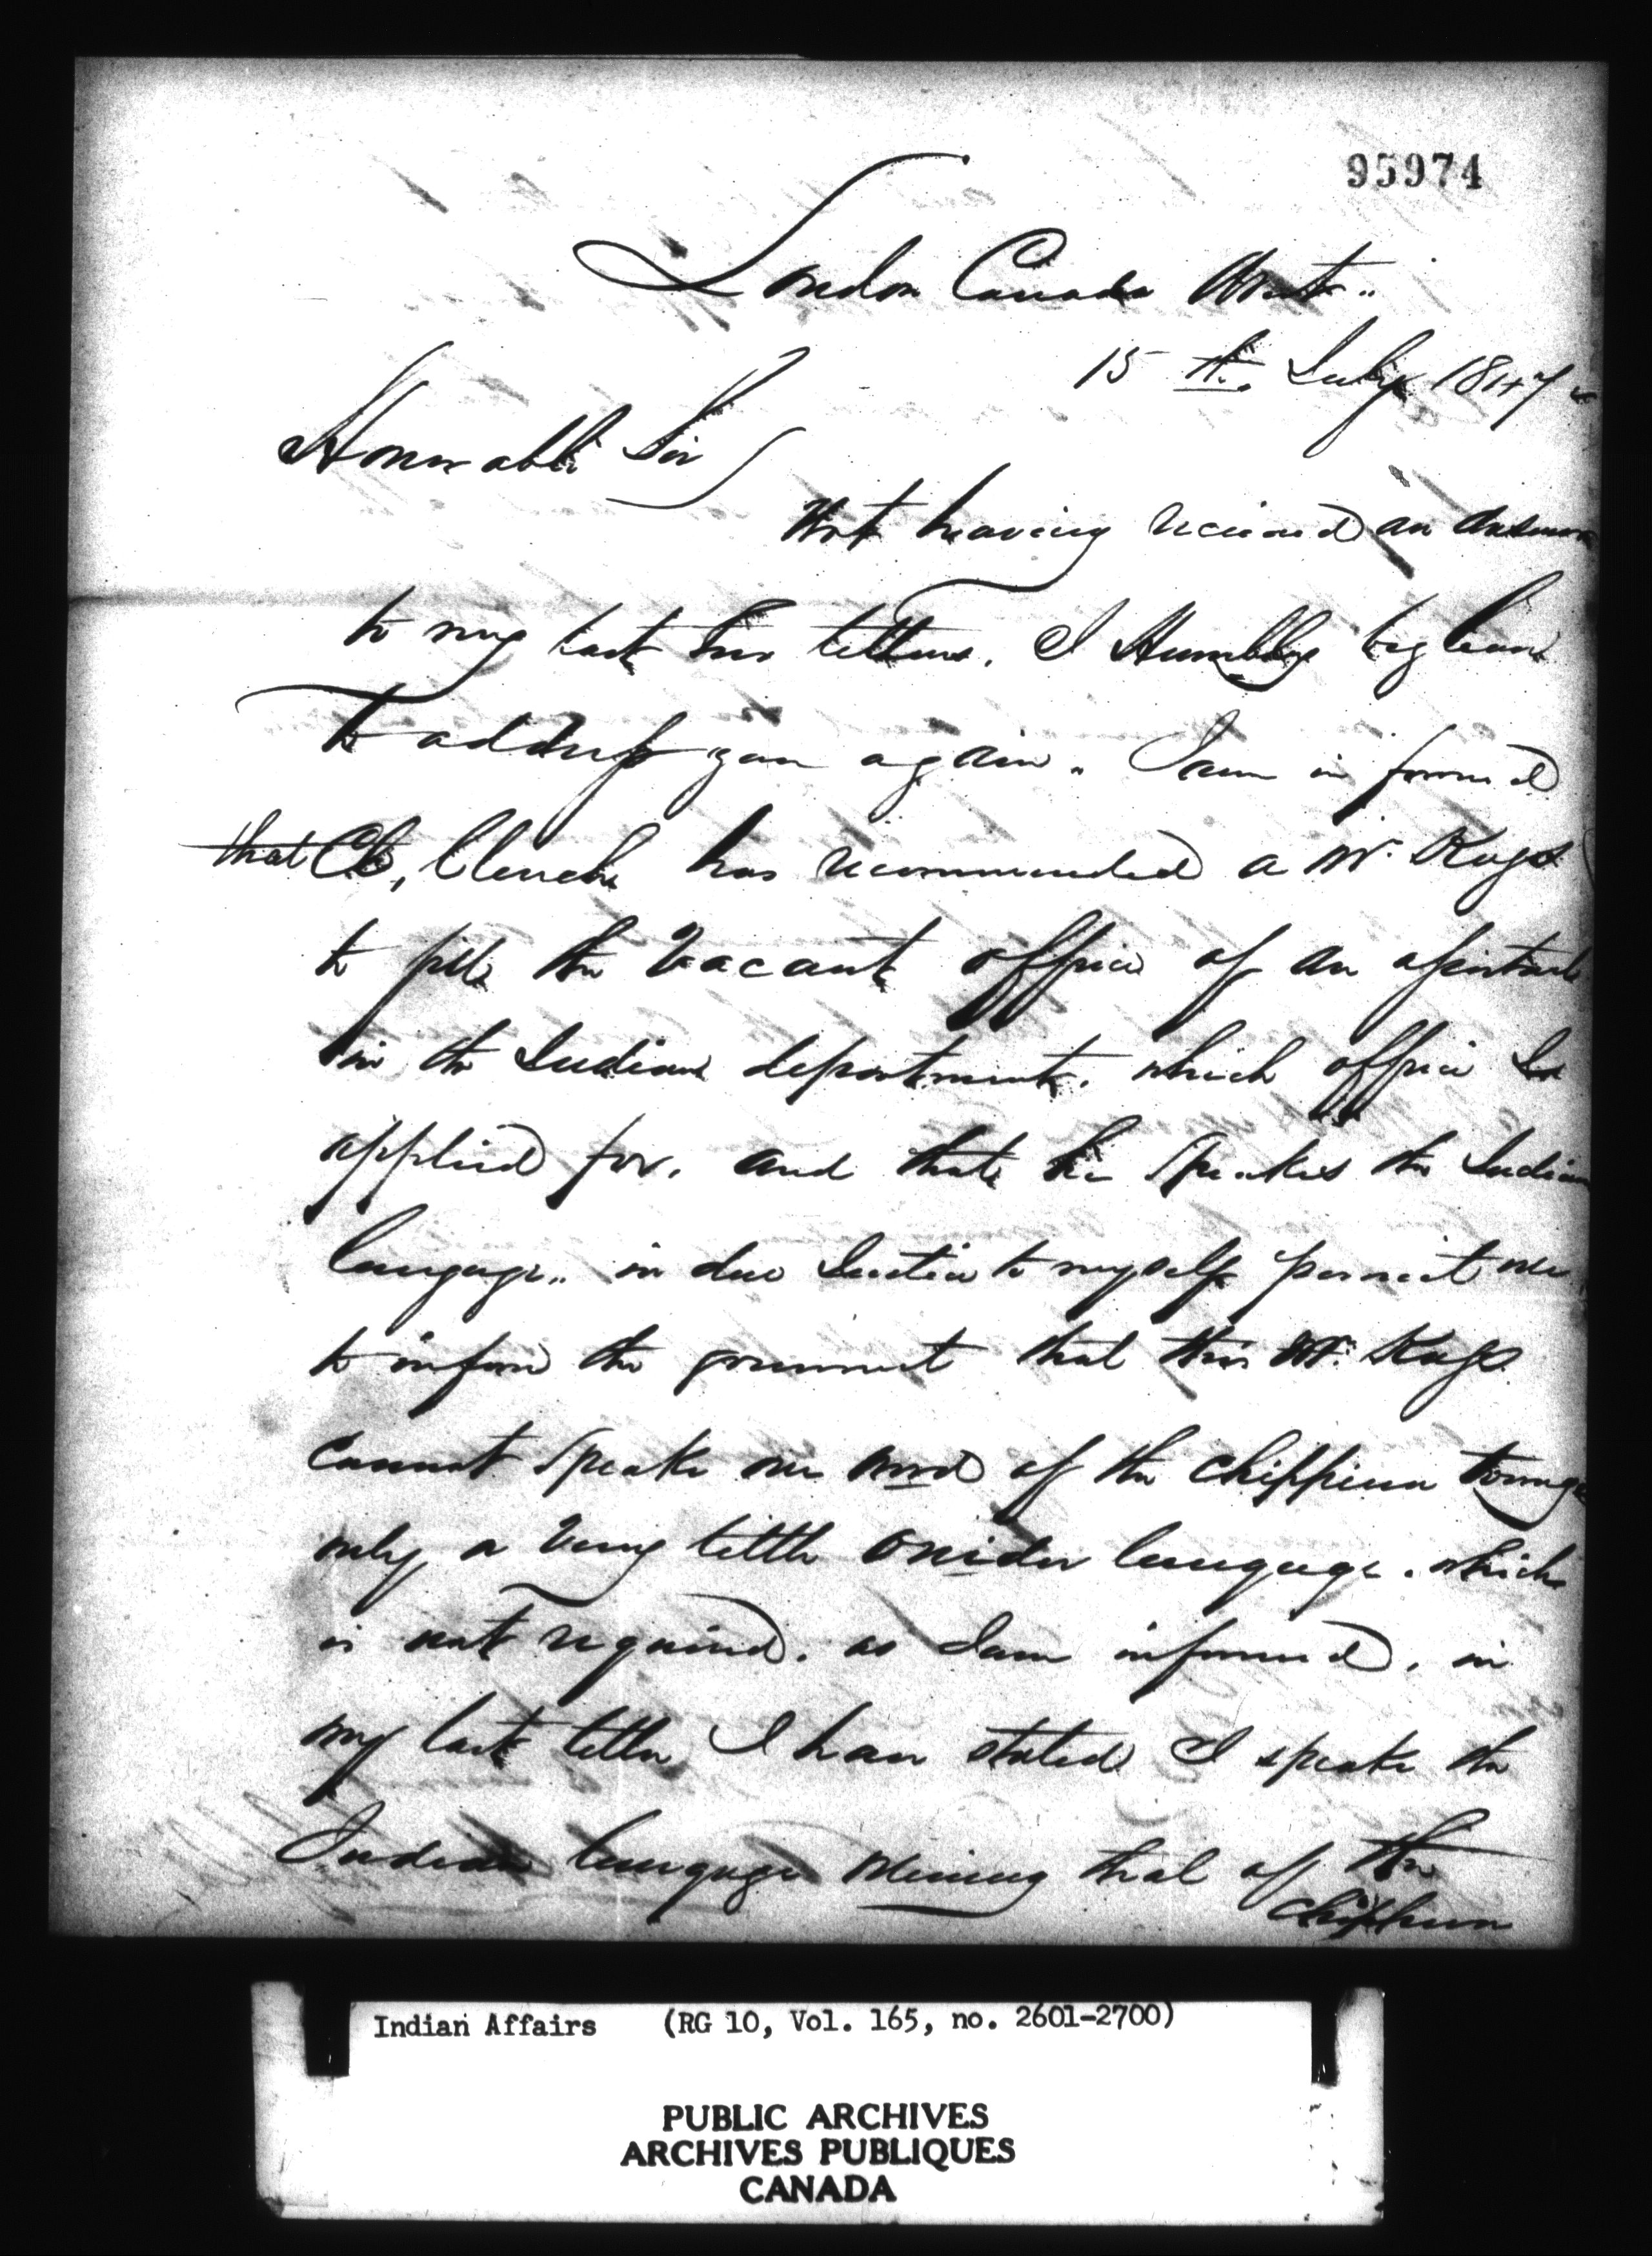 95974
London Canada West"
15 th. July 1847
Honorable Sir
Not having received an answer
to my last two letters. I Humbly beg leave
to address you again. I am informed
that Cl, Clench has recommended a Mr.
to fill the Vacant office of an
in the Indian department. which office I
applied for. and that he speakes the Indian
languge" in due Justice to myself permit me
to inform the goverment that this Mr.
cannot speake one word of the Chippiwa tounge
only a very little onida languge. which
is not required. as I am informed. in
my last letter I have stated I speake the
Indian languge mening that of the
Chippiwa
Indian Affairs (RG 10, Vol. 165, no. 2601-2700)
PUBLIC ARCHIVES
ARCHIVES PUBLIQUES
CANADA